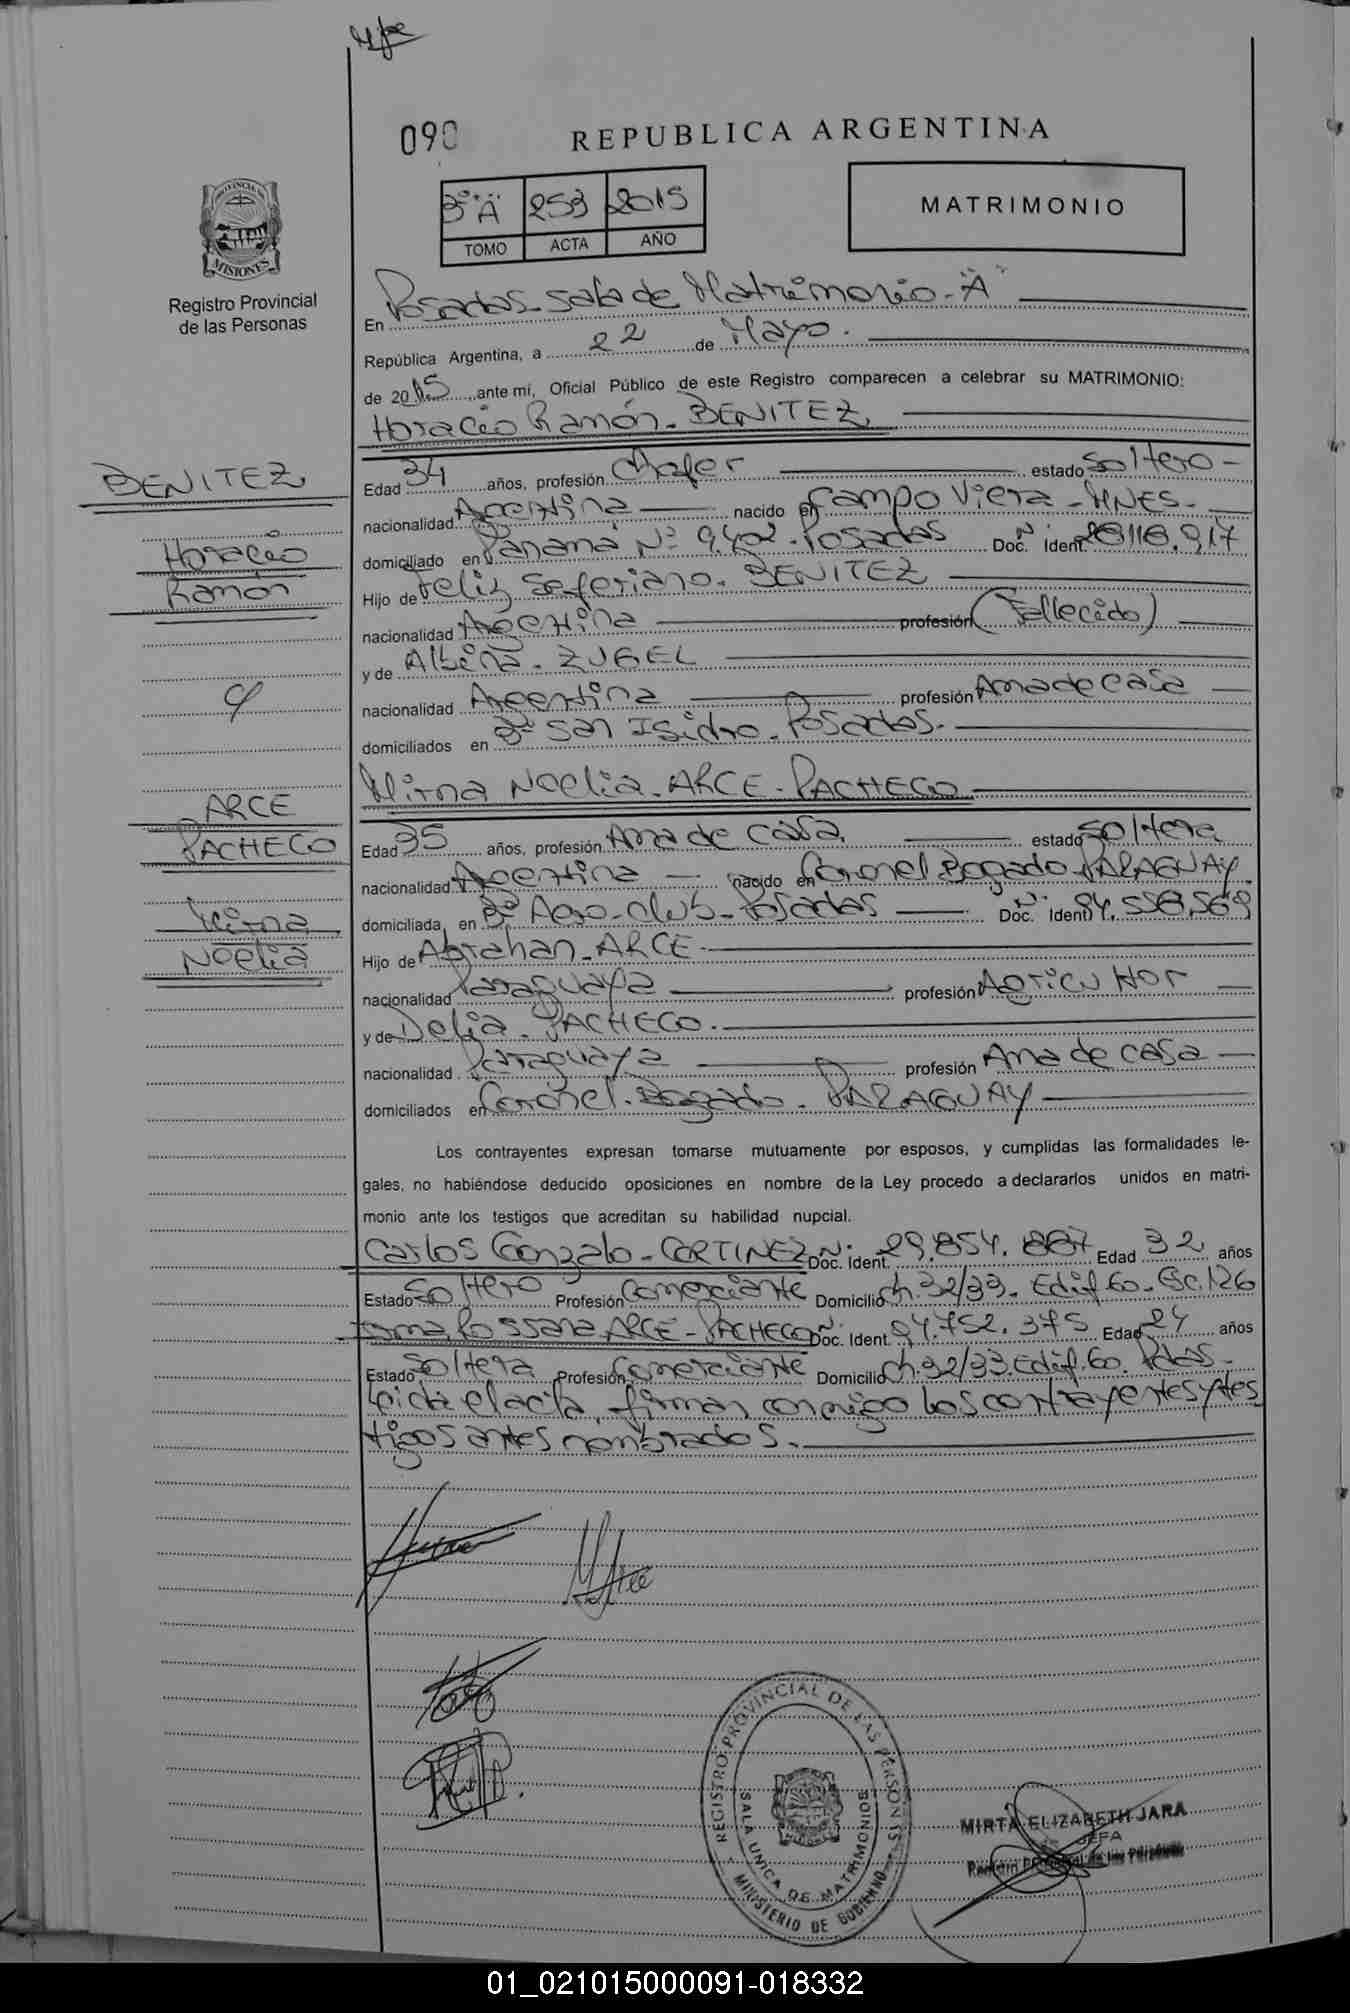 090 REPUBLICA ARGENTINA
3º "A" 259 2015
TOMO ACTA AÑO
MATRIMONIO
PROVINCIA DE
MISIONES
Registro Provincial
de las Personas
En Posadas-sala de Matrimonio-"A"
República Argentina, a 22 de Mayo.
de 2015 ante mí, Oficial Público de este Registro comparecen a celebrar su MATRIMONIO:
Horacio Ramón. BENITEZ
BENITEZ
Horacio
Ramón
y
ARCE
PACHECO
Mirna
Noelia
Edad 34 años, profesión Chofer estado Soltero-
nacionalidad Argentina nacido en Campo Viera-MNES-
domiciliado en Panamá Nº 9.402-Posadas Doc. Nº Ident. 28.118.917
Hijo de Feliz Seferiano. BENITEZ
nacionalidad Argentina profesión (Fallecido)
y de Albina. ZUBEL
nacionalidad Argentina profesión Ama de casa
domiciliados en Bº San Isidro-Posadas.
Mirna Noelia-ARCE-PACHECO
Edad 35 años, profesión Ama de casa estado Soltera
nacionalidad Argentina nacido en Coronel Bogado-PARAGUAY
domiciliada en Bº Aero-club-Posadas Doc. Nº Ident. 94.558.569
Hijo de Abrahan-ARCE.
nacionalidad Paraguaya profesión Agricultor
y de Delia. PACHECO.
nacionalidad Paraguaya profesión Ama de casa
domiciliados en Coronel. Bogado. PARAGUAY
Los contrayentes expresan tomarse mutuamente por esposos, y cumplidas las formalidades le-
gales, no habiéndose deducido oposiciones en nombre de la Ley procedo a declararlos unidos en matri-
monio ante los testigos que acreditan su habilidad nupcial.
Carlos Gonzalo-CORTINEZ Doc. Nº Ident. 29.854.887 Edad 32 años
Estado Soltero Profesión Comerciante Domicilio Ch.32/33. Edif. 60-Esc. 126
Rossana ARCE-PACHECO Doc. Nº Ident. 94.752.375 Edad 24 años
Estado Soltera Profesión Comerciante Domicilio Ch.32/33. Edif. 60. Pdas-
Leida el acta, firman conmigo los contrayentes y tes
tigos antes nombrados.
REGISTRO PROVINCIAL DE LAS PERSONAS
SALA UNICA DE MATRIMONIOS
MINISTERIO DE GOBIERNO
MIRTA ELIZABETH JARA
JEFA
Registro Provincial de las Personas
01_021015000091-018332